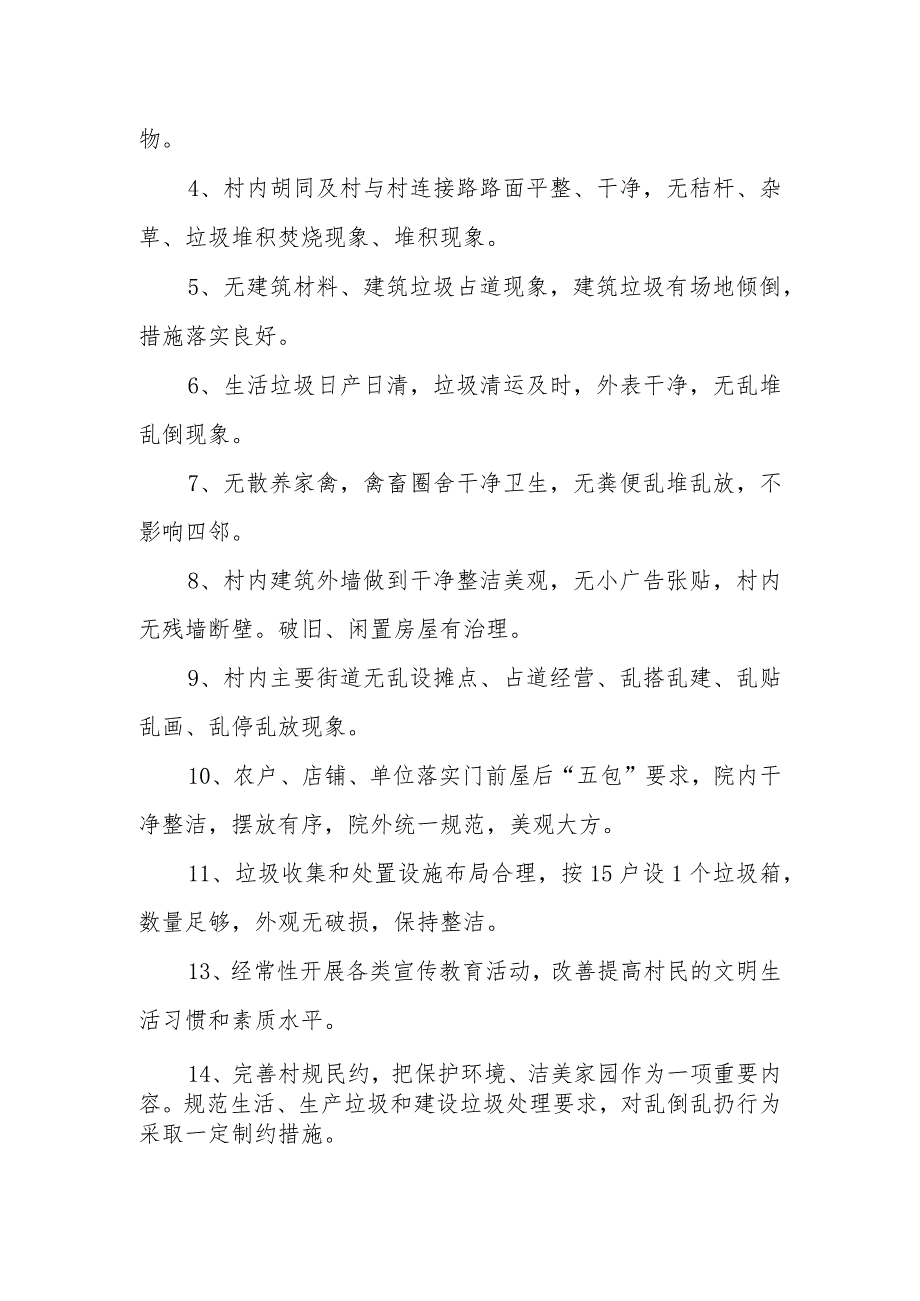 物。
4、村内胡同及村与村连接路路面平整、干净，无秸杆、杂
草、垃圾堆积焚烧现象、堆积现象。
5、无建筑材料、建筑垃圾占道现象，建筑垃圾有场地倾倒，
措施落实良好。
6、生活垃圾日产日清，垃圾清运及时，外表干净，无乱堆
乱倒现象。
7、无散养家禽，禽畜圈舍干净卫生，无粪便乱堆乱放，不
影响四邻。
8、村内建筑外墙做到干净整洁美观，无小广告张贴，村内
无残墙断壁。破旧、闲置房屋有治理。
9、村内主要街道无乱设摊点、占道经营、乱搭乱建、乱贴
乱画、乱停乱放现象。
10、农户、店铺、单位落实门前屋后“五包”要求，院内干
净整洁，摆放有序，院外统一规范，美观大方。
11、垃圾收集和处置设施布局合理，按15户设1个垃圾箱，
数量足够，外观无破损，保持整洁。
13、经常性开展各类宣传教育活动，改善提高村民的文明生
活习惯和素质水平。
14、完善村规民约，把保护环境、洁美家园作为一项重要内
容。规范生活、生产垃圾和建设垃圾处理要求，对乱倒乱扔行为
采取一定制约措施。